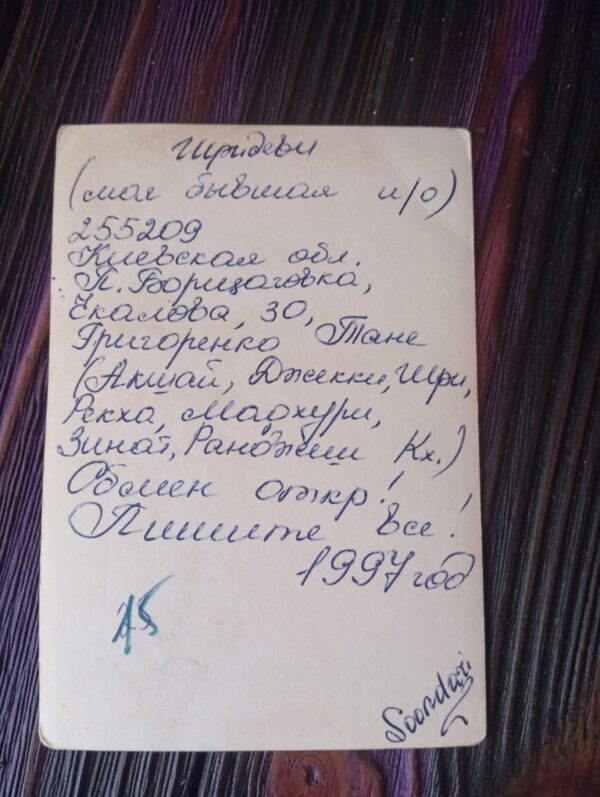 Шридеви
(моя бывшая и/о)
255209
Киевская обл.
П. Борщаговка,
Чкалова, 30,
Григоренко Тане
(Акшай, Джекки, Шри,
Рекха, Мадхури,
Зинат, Ранджит Кх.)
Обмен откр.!
Пишите все!
1997 год
15
Soondari